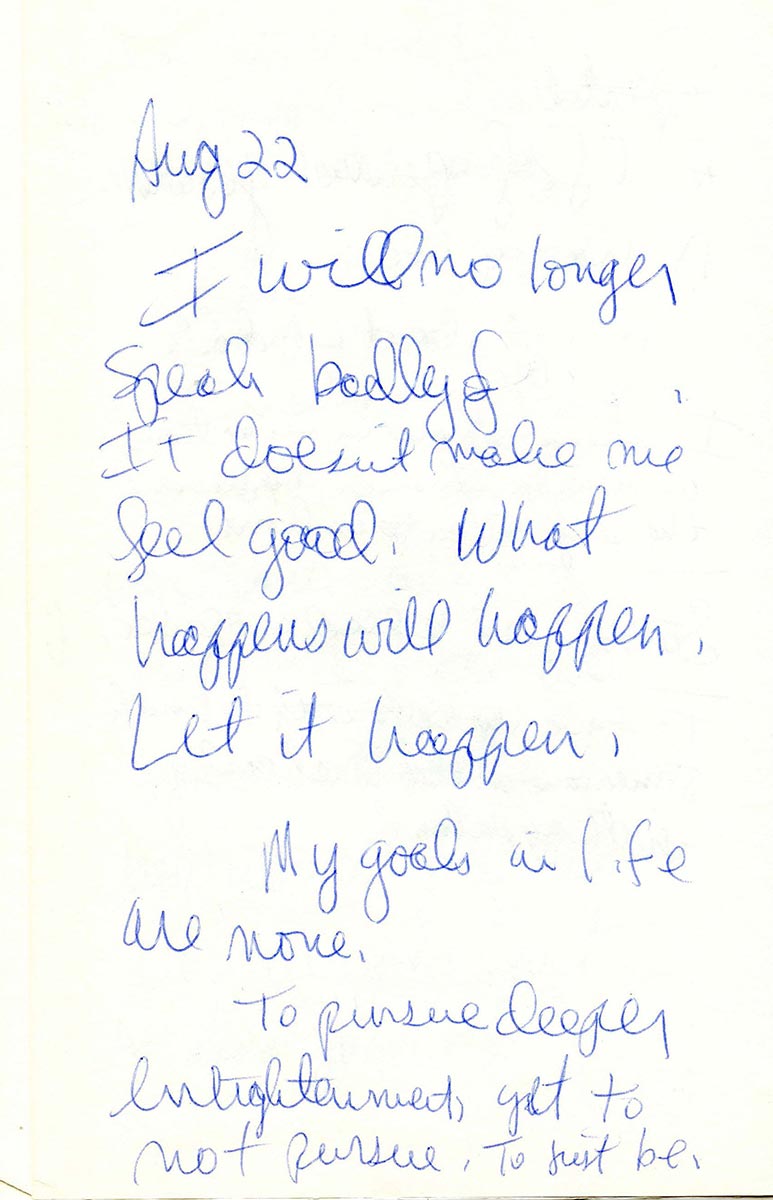 Aug 22
I will no longer
speak badly of .
It doesn't make me
feel good. What
happens will happen.
Let it happen.
My goals in life
are none.
To pursue deeper
enlightenment, yet to
not pursue. To just be.